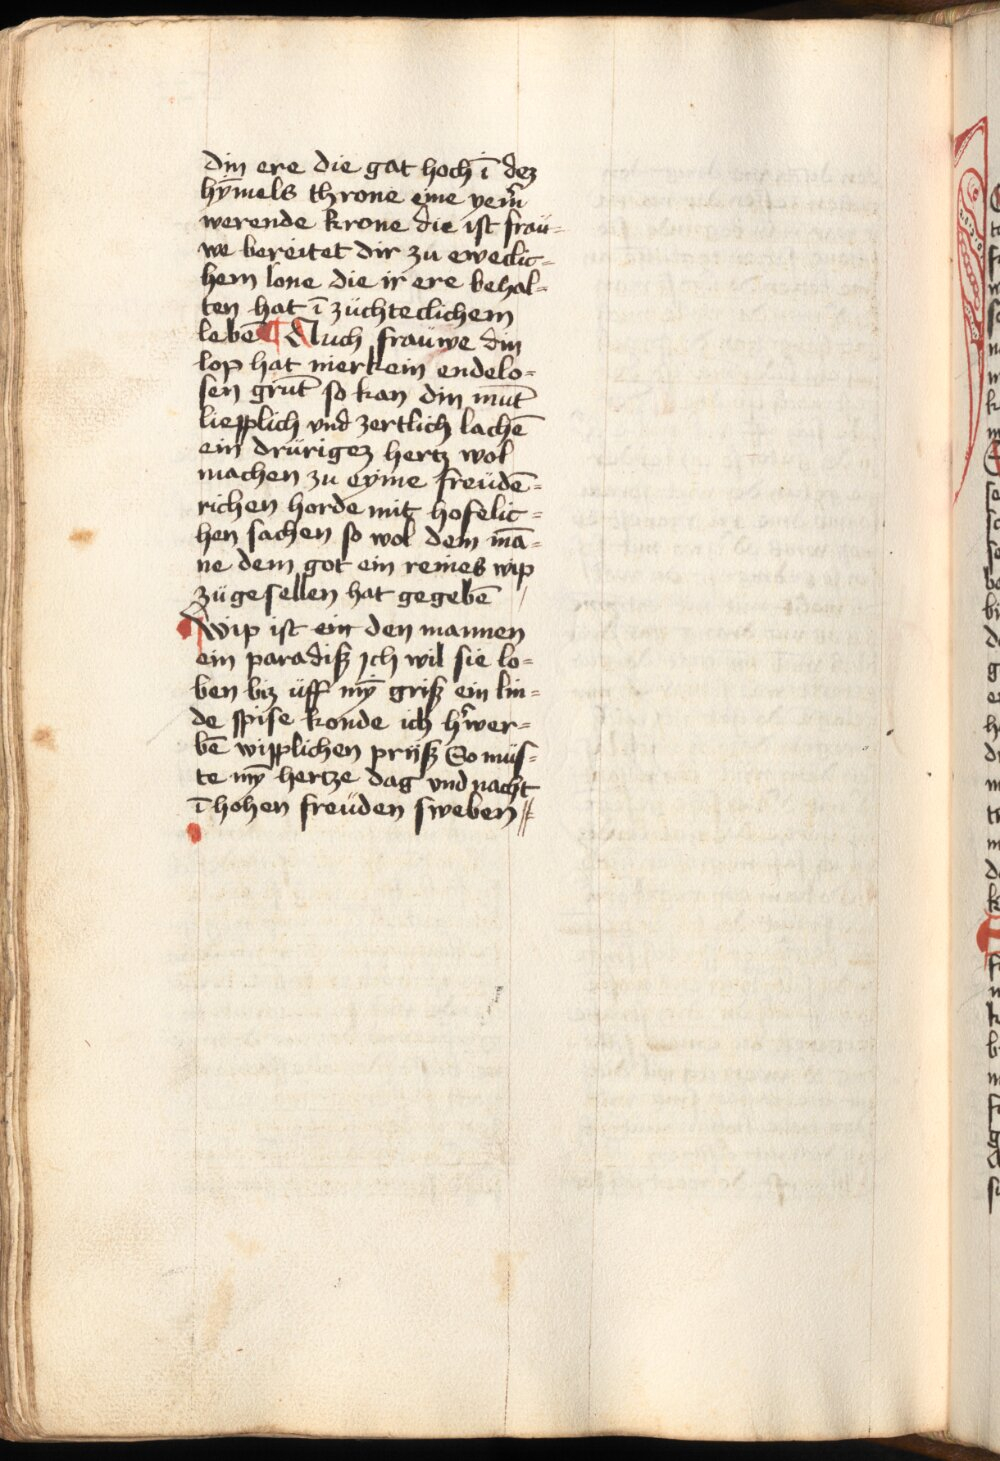 din ere die gat hoch ī dez
hȳmels throne eine yem̄
werende krone die ist fraü-
we bereitet dir zu eweclic-
hem lone die ir ere behal-
ten hat ī züchteclichem
lebē Auch fraüwe din
lop hat nierkein endelo-
sen grūt so kan din mūt
liepplich vnd zertlich lachē
ein drürigez hertz wol
machen zu eyme freüdē-
richen horde mit hofelic-
hen sachen so wol dem mā-
ne dem got ein reines wip
zü gesellen hat gegebē
Wip ist ein den mannen
ein paradiß ich wil sie lo-
ben biz üff mȳ griß ein lin-
de spise konde ich h'wer-
bē wipplichen prijß So müs-
te mȳ hertze dag vnd nacht
ī hohen freüden sweben